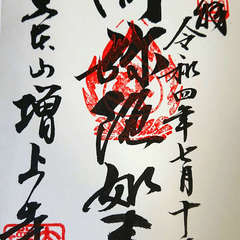 令和四年七月十
阿弥陀如来
大本山増上寺